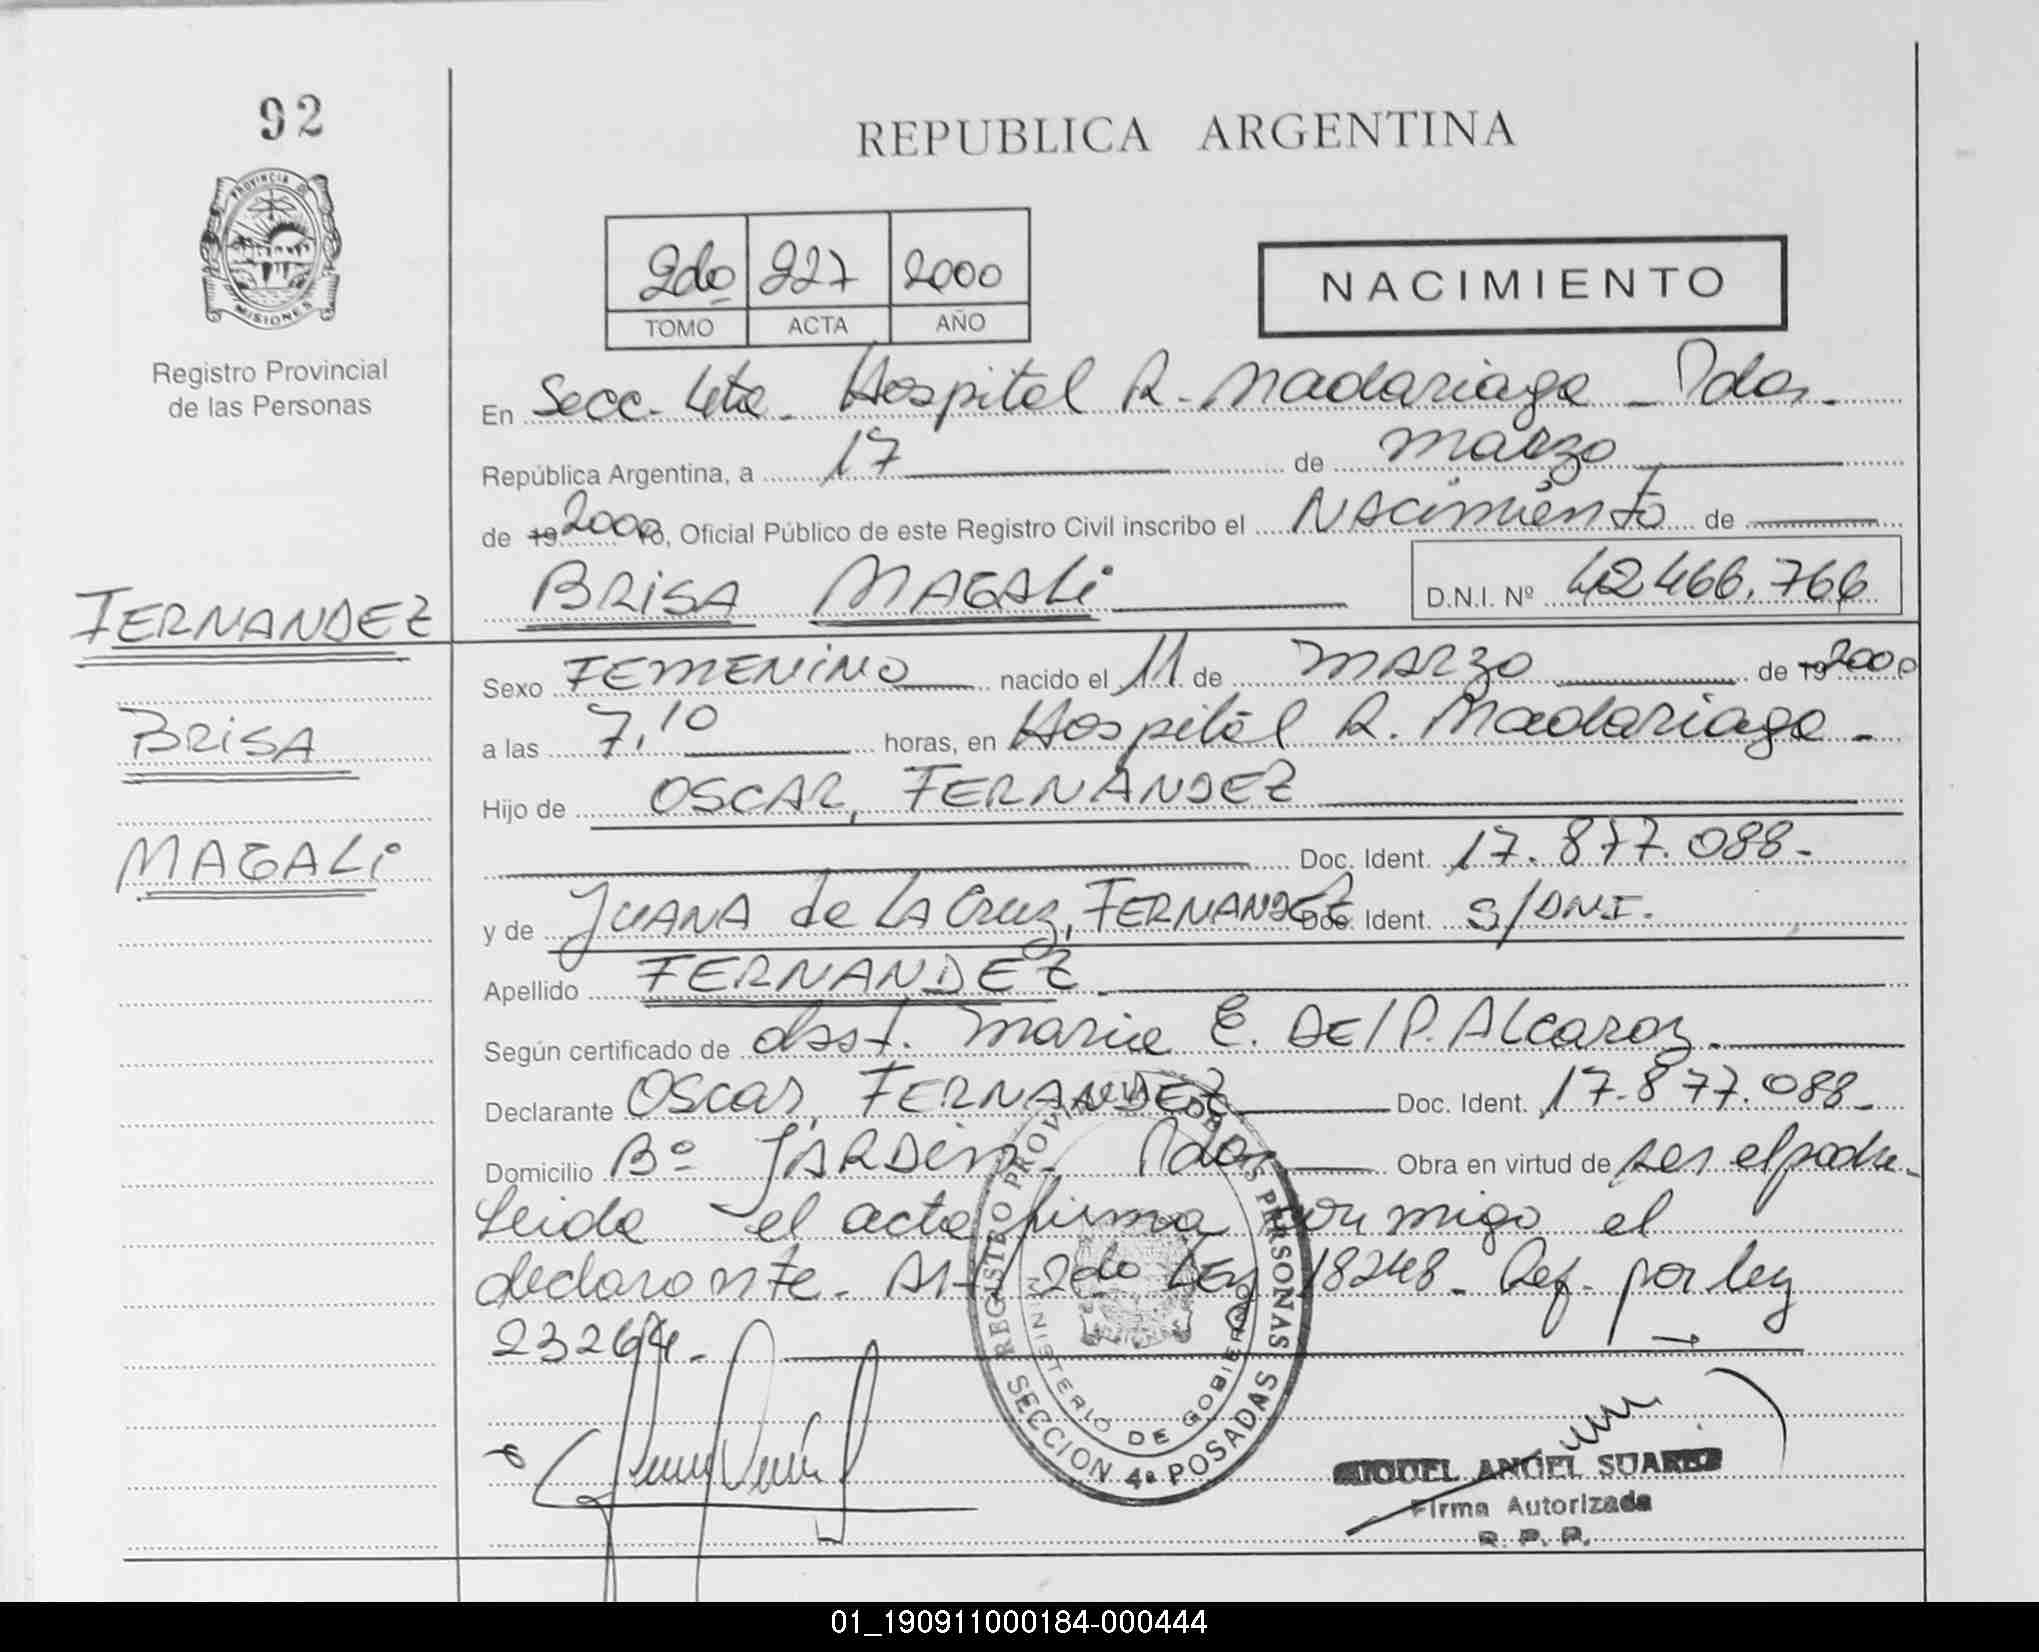 92
PROVINCIA DE
MISIONES
Registro Provincial
de las Personas
REPUBLICA ARGENTINA
2do 227 2000
TOMO ACTA AÑO
NACIMIENTO
En Secc. 4ta - Hospital R. Madariaga - Pdas.
República Argentina, a 17 de marzo
de 19 2000, Oficial Público de este Registro Civil inscribo el NACimiento de
BRiSA MAGALi D.N.I. Nº 42466.766
FERNANDEZ
BRiSA
MAGALi
Sexo FEMENINO nacido el 11 de MARZO de 19 2000
a las 7,10 horas, en Hospital R. Madariaga -
Hijo de OSCAR, FERNANDEZ
Doc. Ident. 17.877.088-
y de JUANA de LA Cruz, FERNANDEZ Doc. Ident. S/DNI.
Apellido FERNANDEZ
Según certificado de obst. Maria E. DEl P. Alcaraz.
Declarante Oscar, FERNANDEZ Doc. Ident. 17.877.088-
Domicilio Bº JARDin - Pdas Obra en virtud de ser el padre.
Leida el acta firma conmigo el
declarante. Art 2do LEy 18248. Ref. por ley
23264.
REGISTRO PROVINCIAL DE LAS PERSONAS
MINISTERIO DE GOBIERNO
SECCION 4ª POSADAS
MIGUEL ANGEL SUAREZ
Firma Autorizada
R. P. P.
01_190911000184-000444